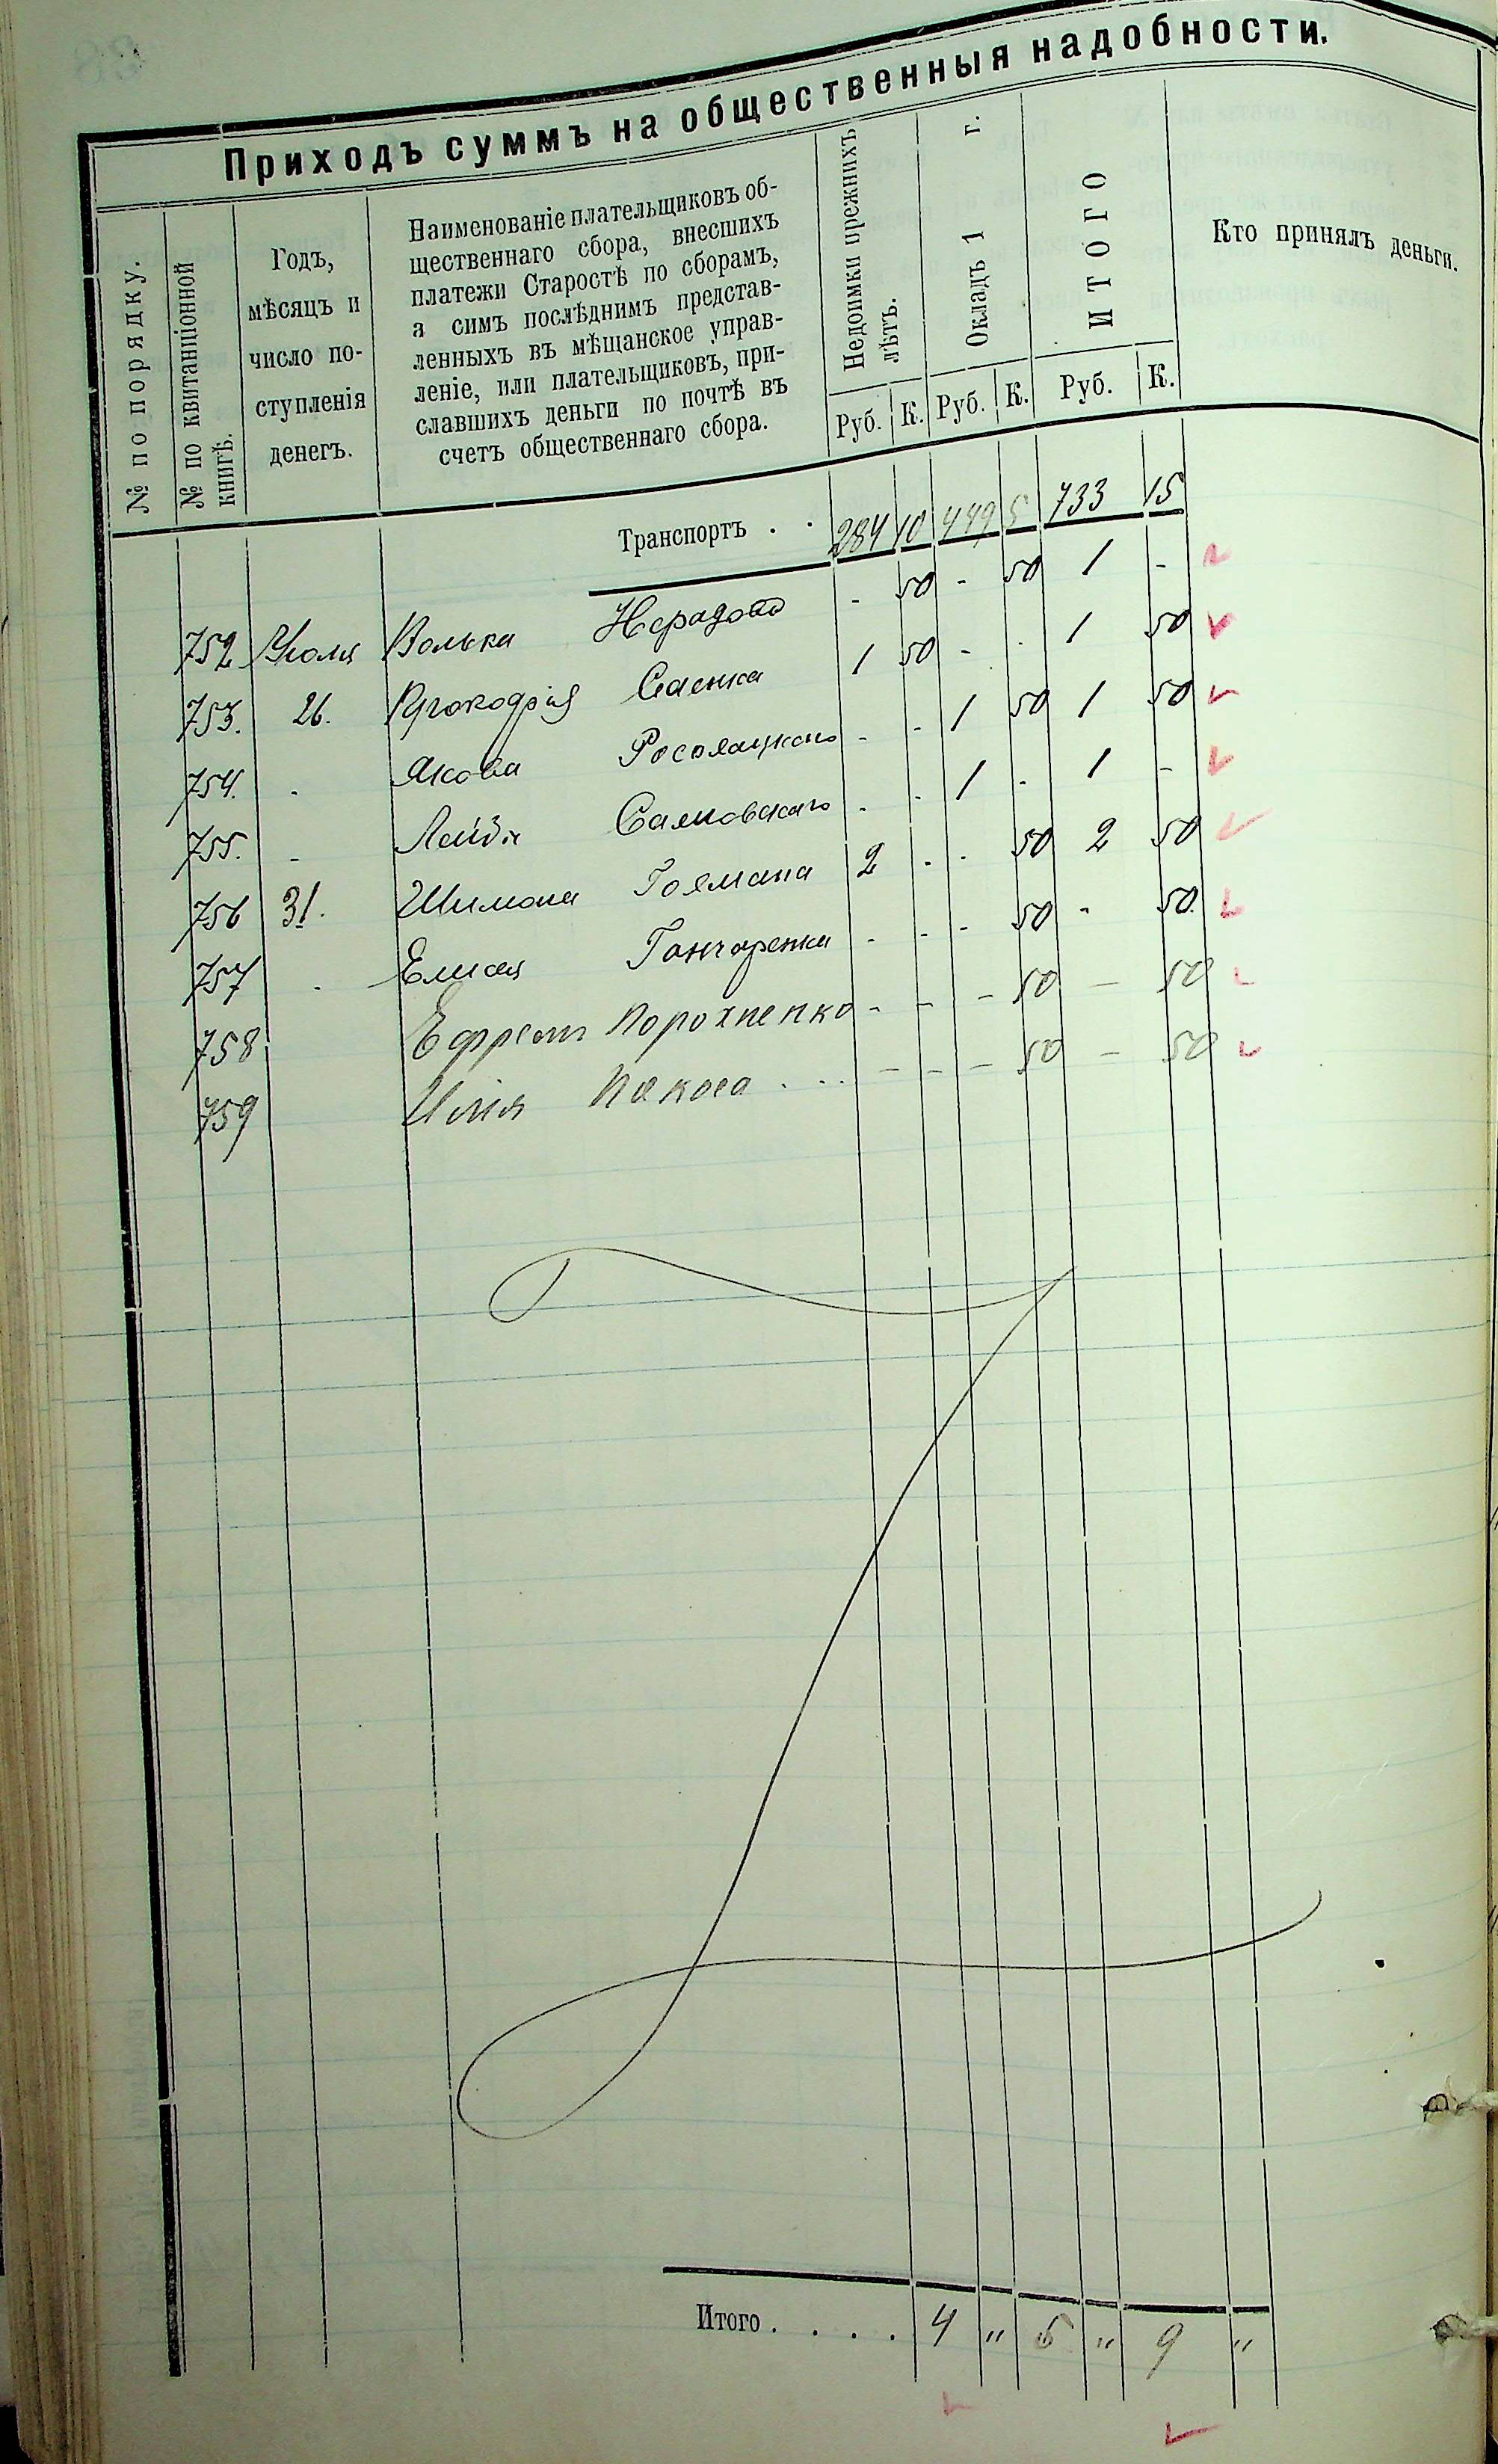 Приходъ суммъ на общественныя надобности.
№ по порядку.
№ по квитанціонной
книгѣ.
Годъ,
мѣсяцъ и
число по-
ступленія
денегъ.
Наименованіе плательщиковъ об-
щественнаго сбора, внесшихъ
платежи Старостѣ по сборамъ,
а симъ послѣднимъ представ-
ленныхъ въ мѣщанское управ-
леніе, или плательщиковъ, при-
славшихъ деньги по почтѣ въ
счетъ общественнаго сбора.
Недоимки прежнихъ
лѣтъ.
Окладъ 1 г.
ИТОГО
Кто принялъ деньги.
Руб. К. Руб. К. Руб. К.
Транспортъ . . 284 10 449 5 733 15
752 Июля Волька - 50 - 50 1 -
753. 26. Саенка 1 50 - . 1 50
754. . Якова - . 1 50 1 50
755. - . . 1 . 1 -
756 31. Шимона Гоямана 2 . . 50 2 50
757 . Елисея Гончаренка . - - 50 - 50.
758 Ефремъ Порохненко - - - 50 - 50
759 Илія . . . . - - - 50 - 50
Итого . . . . 4 " 5 " 9 "